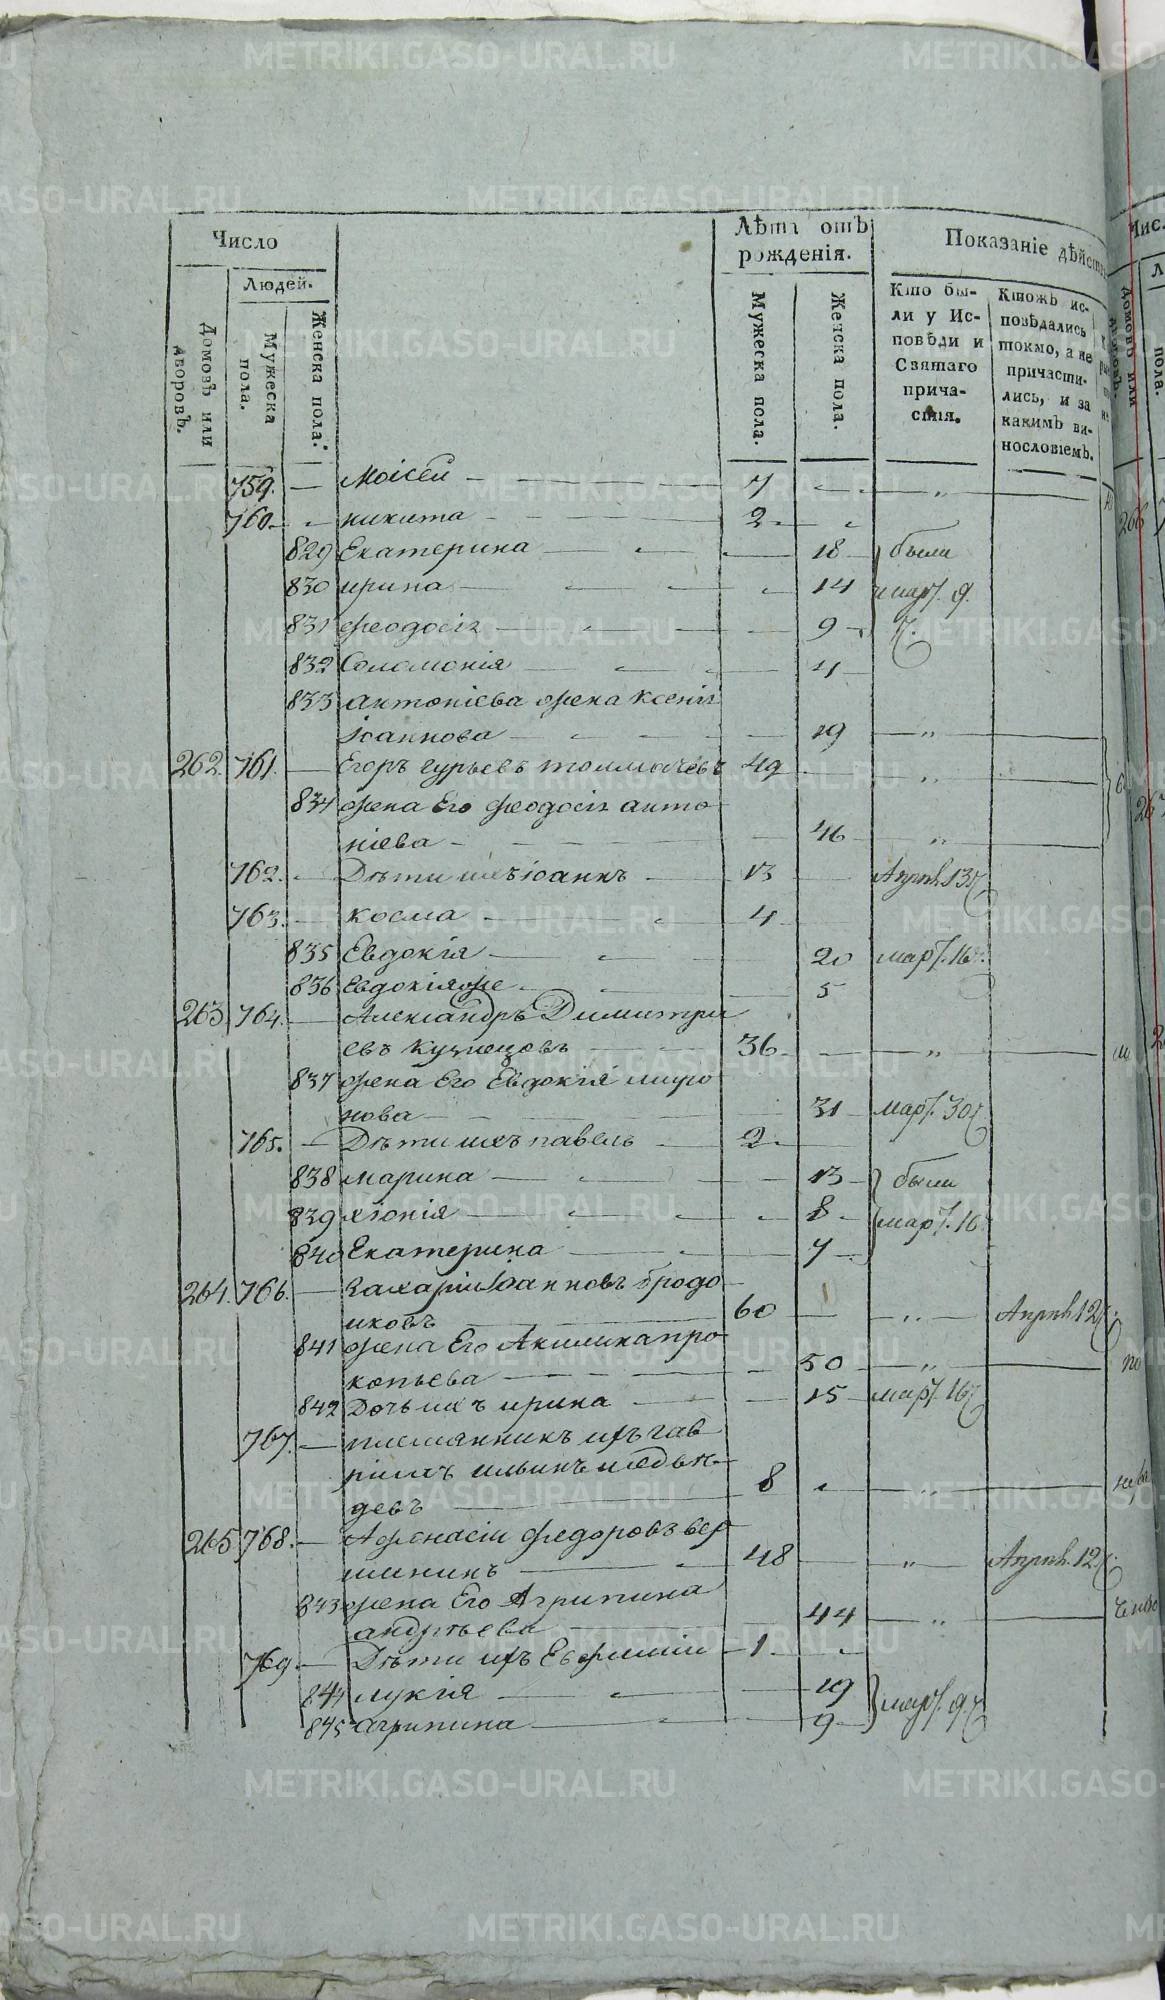 Число
Людей.
Домовъ или дворовъ.
Мужеска пола.
Женска пола.
Лѣта отъ рожденія.
Мужеска пола.
Женска пола.
Показаніе дѣйств
Кто бы-
ли у Ис-
повѣди и
Святаго
прича-
стія.
Ктожъ ис-
повѣдались
токмо, а не
причасти-
лись, и за
какимъ ви-
нословіемъ.
759. — Моісей — 7 — „
760. „ никита — 2 „
829 Екатерина — 18 были
830 ирина — 14 март. 9.
831 феодосія — 9 ч.
832 Соломонія — 4
833 антоніева жена Ксенія
Іоаннова — 19 — „
262. 761. — Егоръ гурьевъ толмачевъ 49 — „
834 жена Его феодосія анто
ніева — 46 — „
762. — Дѣти ихъ іоаннъ — 13 — Апрѣл. 13 ч.
763. — косма — 4
835 Евдокія — 20 март. 16 ч.
836 Евдокіяже — 5
263 764. — Александръ Димитри
евъ кузнецовъ — 36 — „
837 жена Его Евдокія миро
нова — 31 март. 30 ч.
765. — Дѣти ихъ павелъ — 2
838 марина — 13 были
839 хіонія — 8 март. 16
840 Екатерина — 7
264. 766. — Захарій Іоанновъ бродо
иковъ — 60 — „ Апрѣл. 12 ч.
841 жена Его Акилина про
копьева — 50 — „
842 Дочь ихъ ирина — 15 март. 16 ч.
767. — племянникъ ихъ гав
ріилъ ильинъ
девъ — 8 — „
265 768. — Афонасіи федоровъ вер
шининъ — 48 — „ Апрѣл. 12 ч.
843 жена Его Агрипина
андрѣева — 44 — „
769. — Дѣти ихъ Евфимій — 1
844 лукія — 19 март. 9 ч.
845 агрипина — 9
METRIKI.GASO-URAL.RU